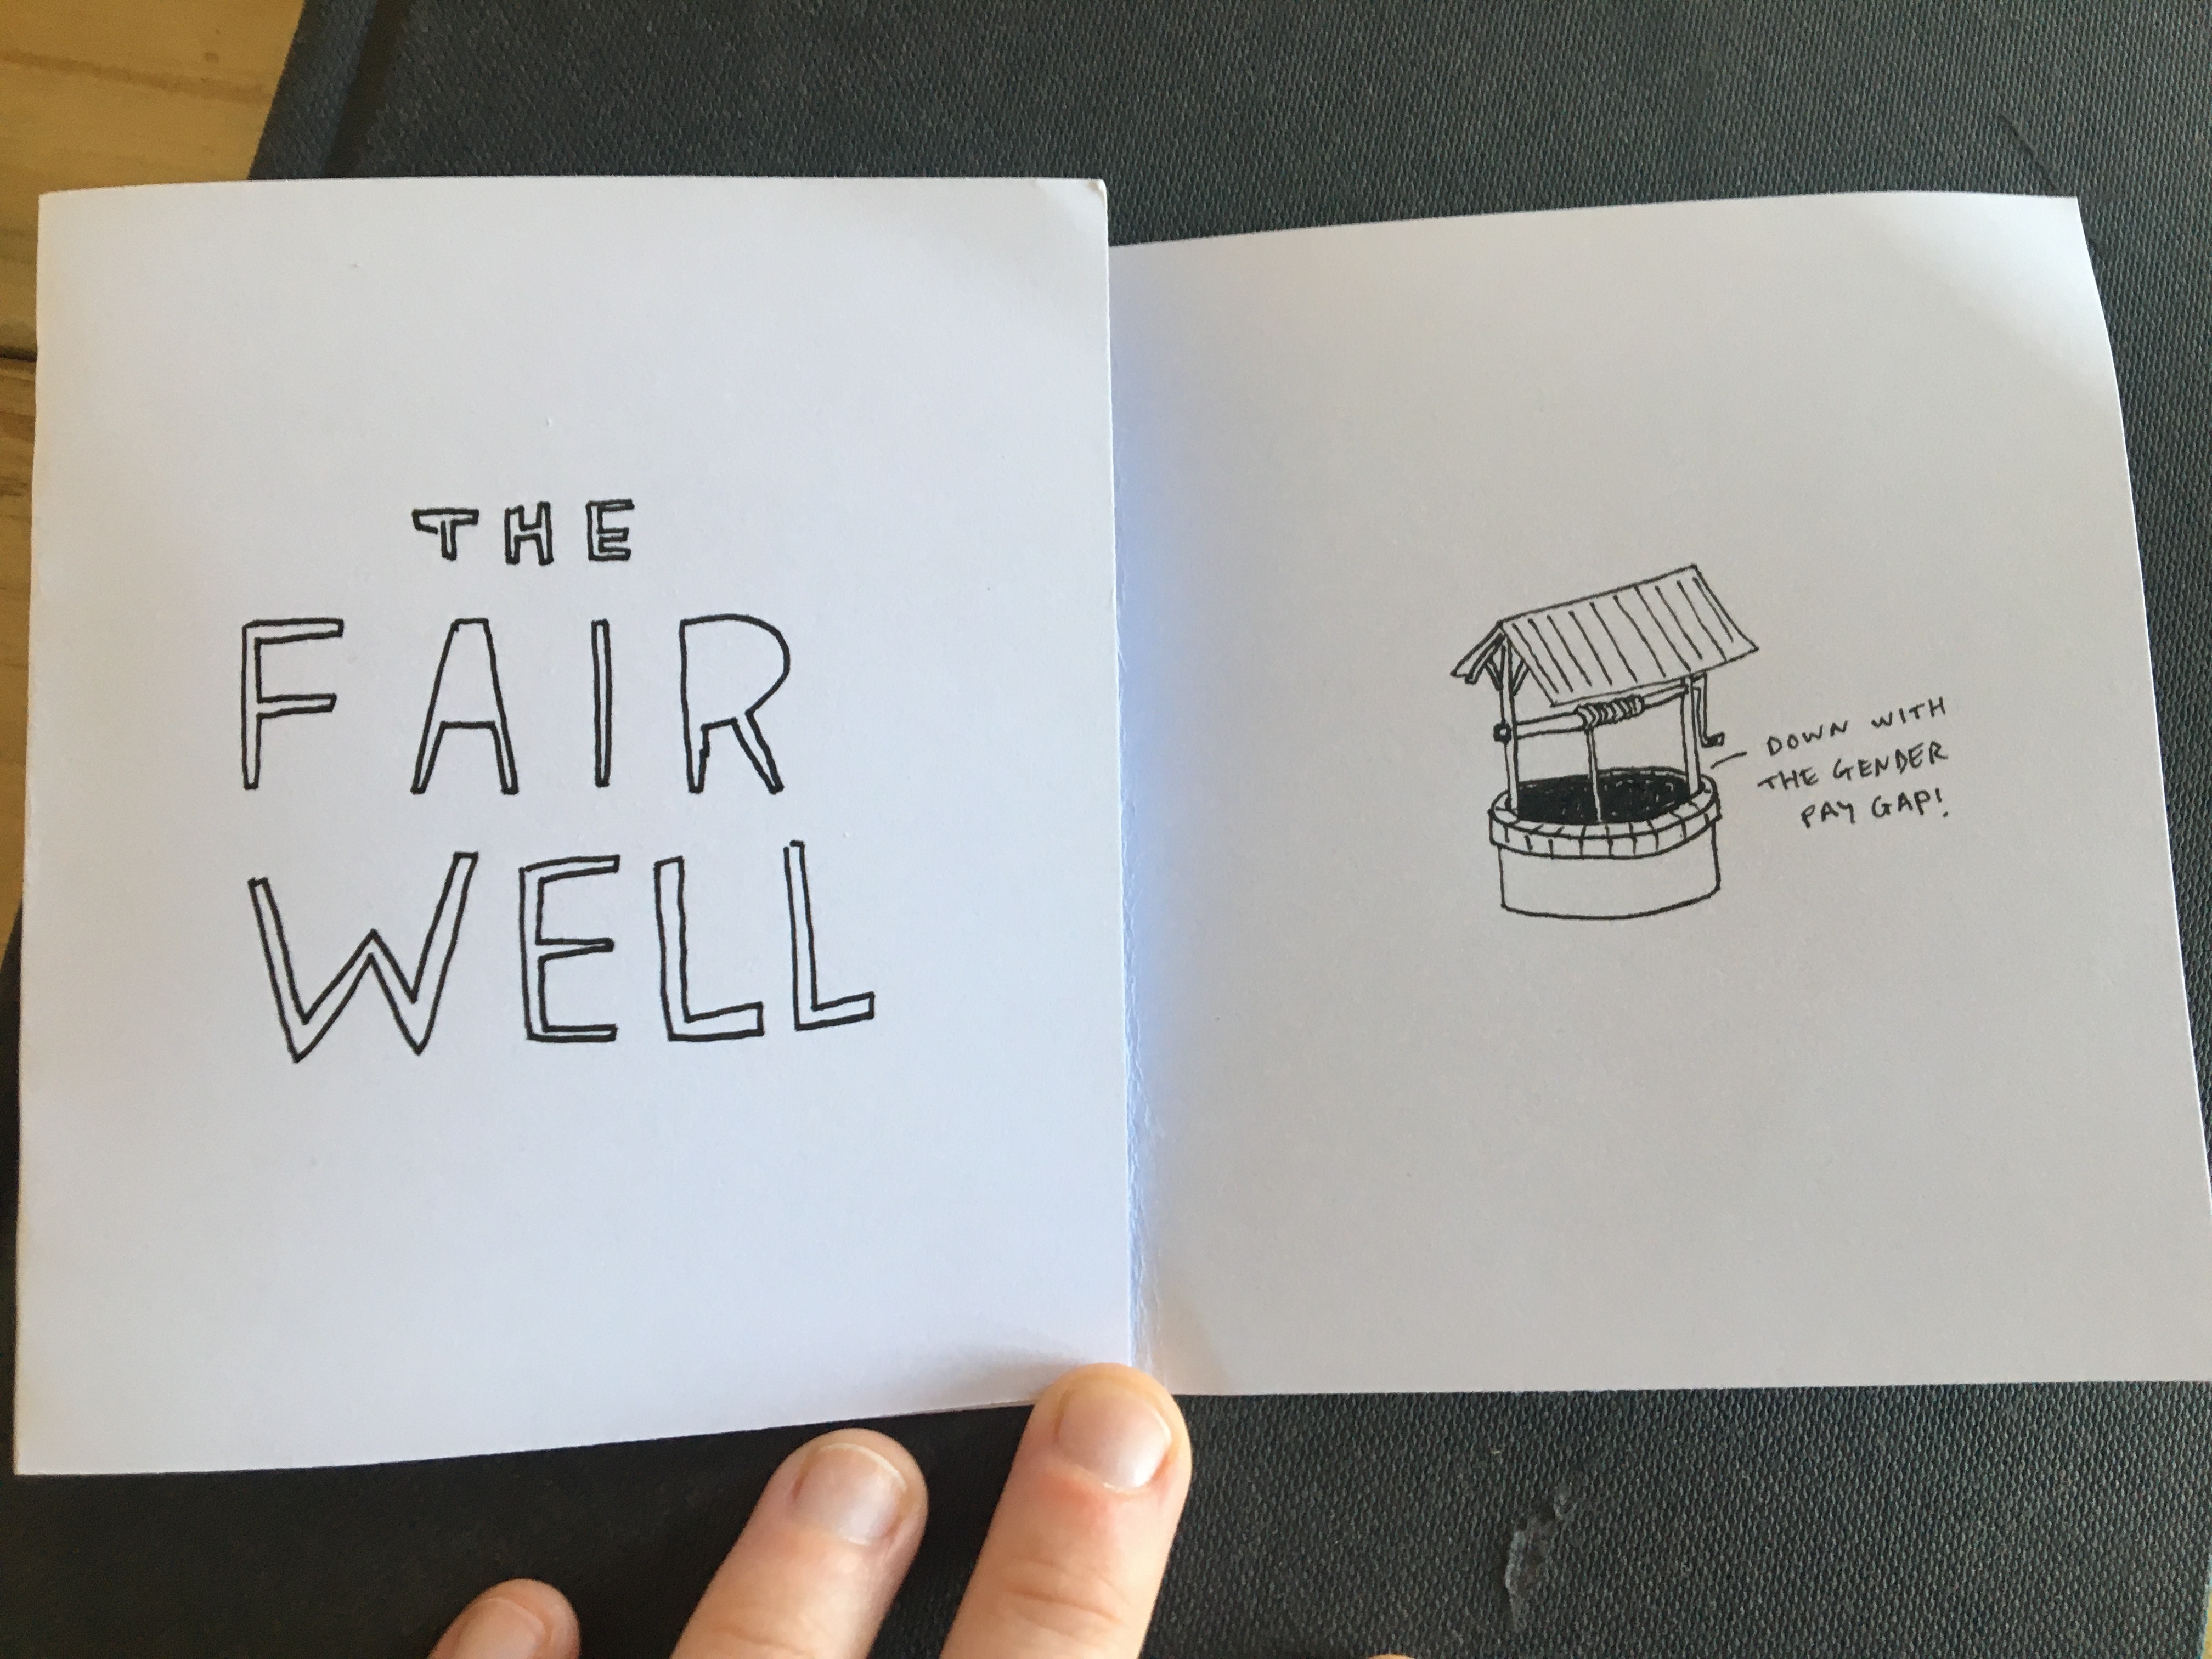 THE
FAIR
WELL
DOWN WITH
THE GENDER
PAY GAP!